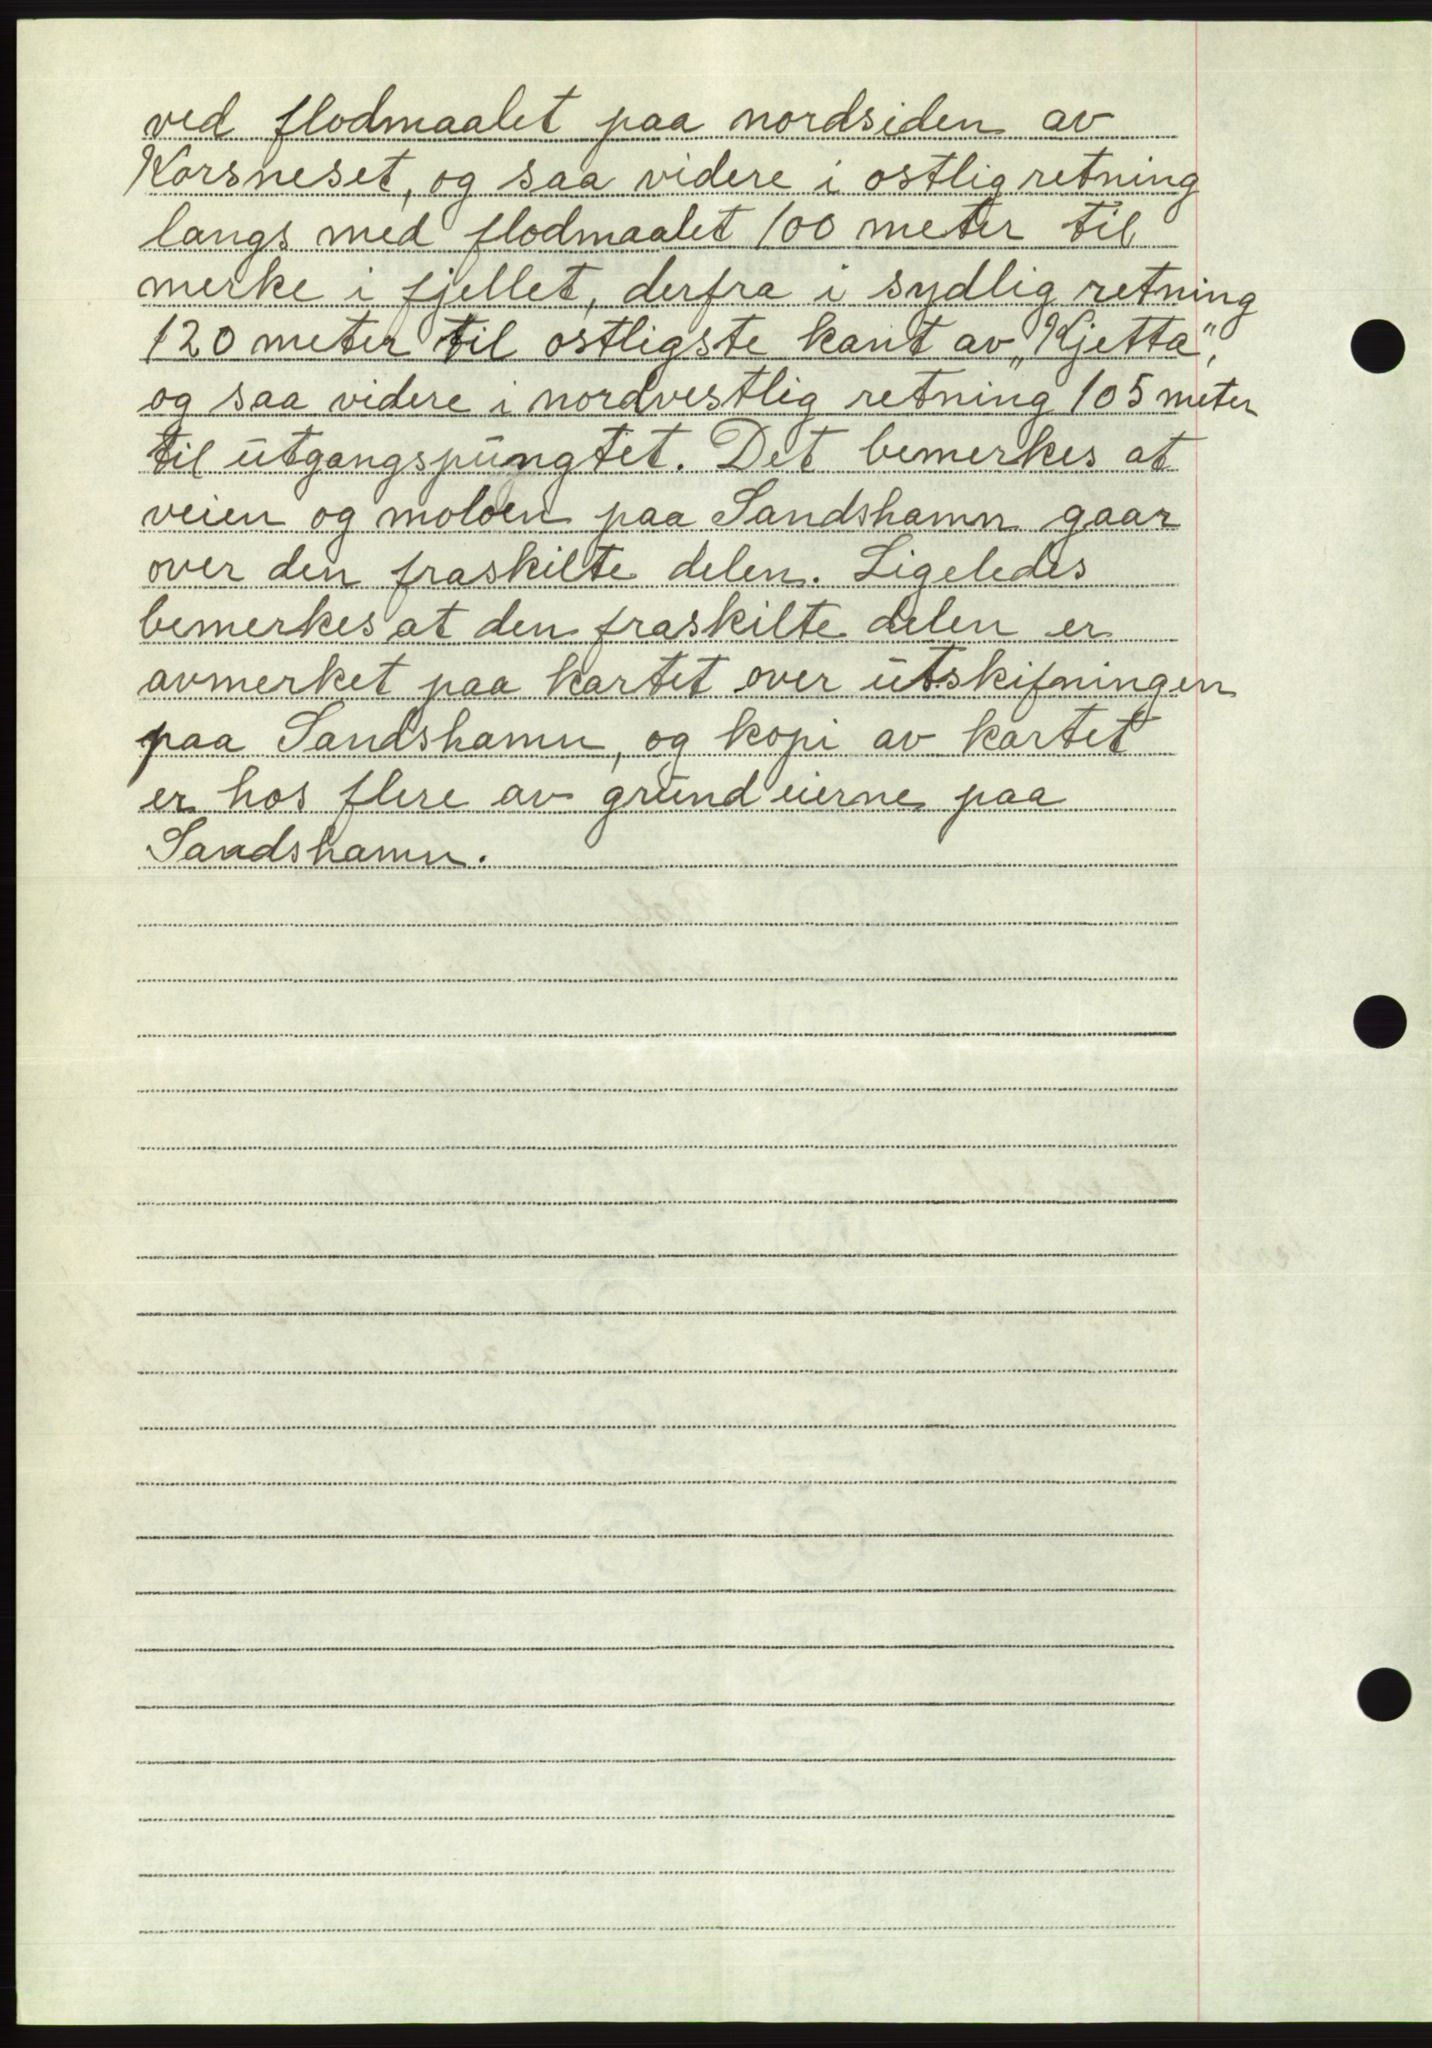 ved flodmaalet paa nordsiden av
Korsneset, og saa videre i ostlig retning
langs med flodmaalet 100 meter til
merke i fjellet, derfra i sydlig retning
120 meter til ostligste kant av „Kjetta",
og saa videre i nordvestlig retning 105 meter
til ūtgangspūngtet. Det bemerkes at
veien og moloen paa Sandshamn gaar
over den fraskilte delen. Ligeledes
bemerkes at den fraskilte delen er
avmerket paa kartet over ūtskifningen
paa Sandshamn, og kopi av kartet
er hos flere av grūndeierne paa
Sandshamn.